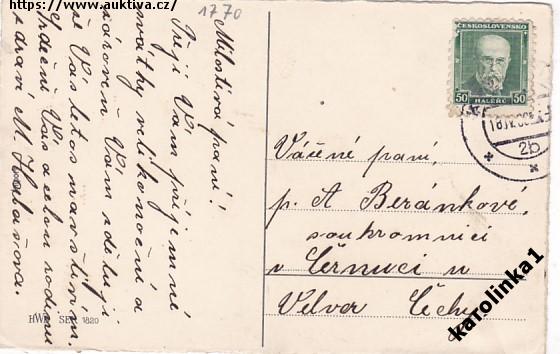 https://www.auktiva.cz/
1770
Milostivá paní!
Přeji Vám příjemné
svátky velikonoční a
zároveň Vám sděluji
že Vás letos navštívím.
Srdečně Vás a celou rodinu
zdraví M.
HWB SER. 1820
ČESKOSLOVENSKO
50 HALÉŘŮ 50
2b
Vážené paní,
p. A Beránkové,
soukromnici
v Černuci u
Velvar Čechy
karolinka1